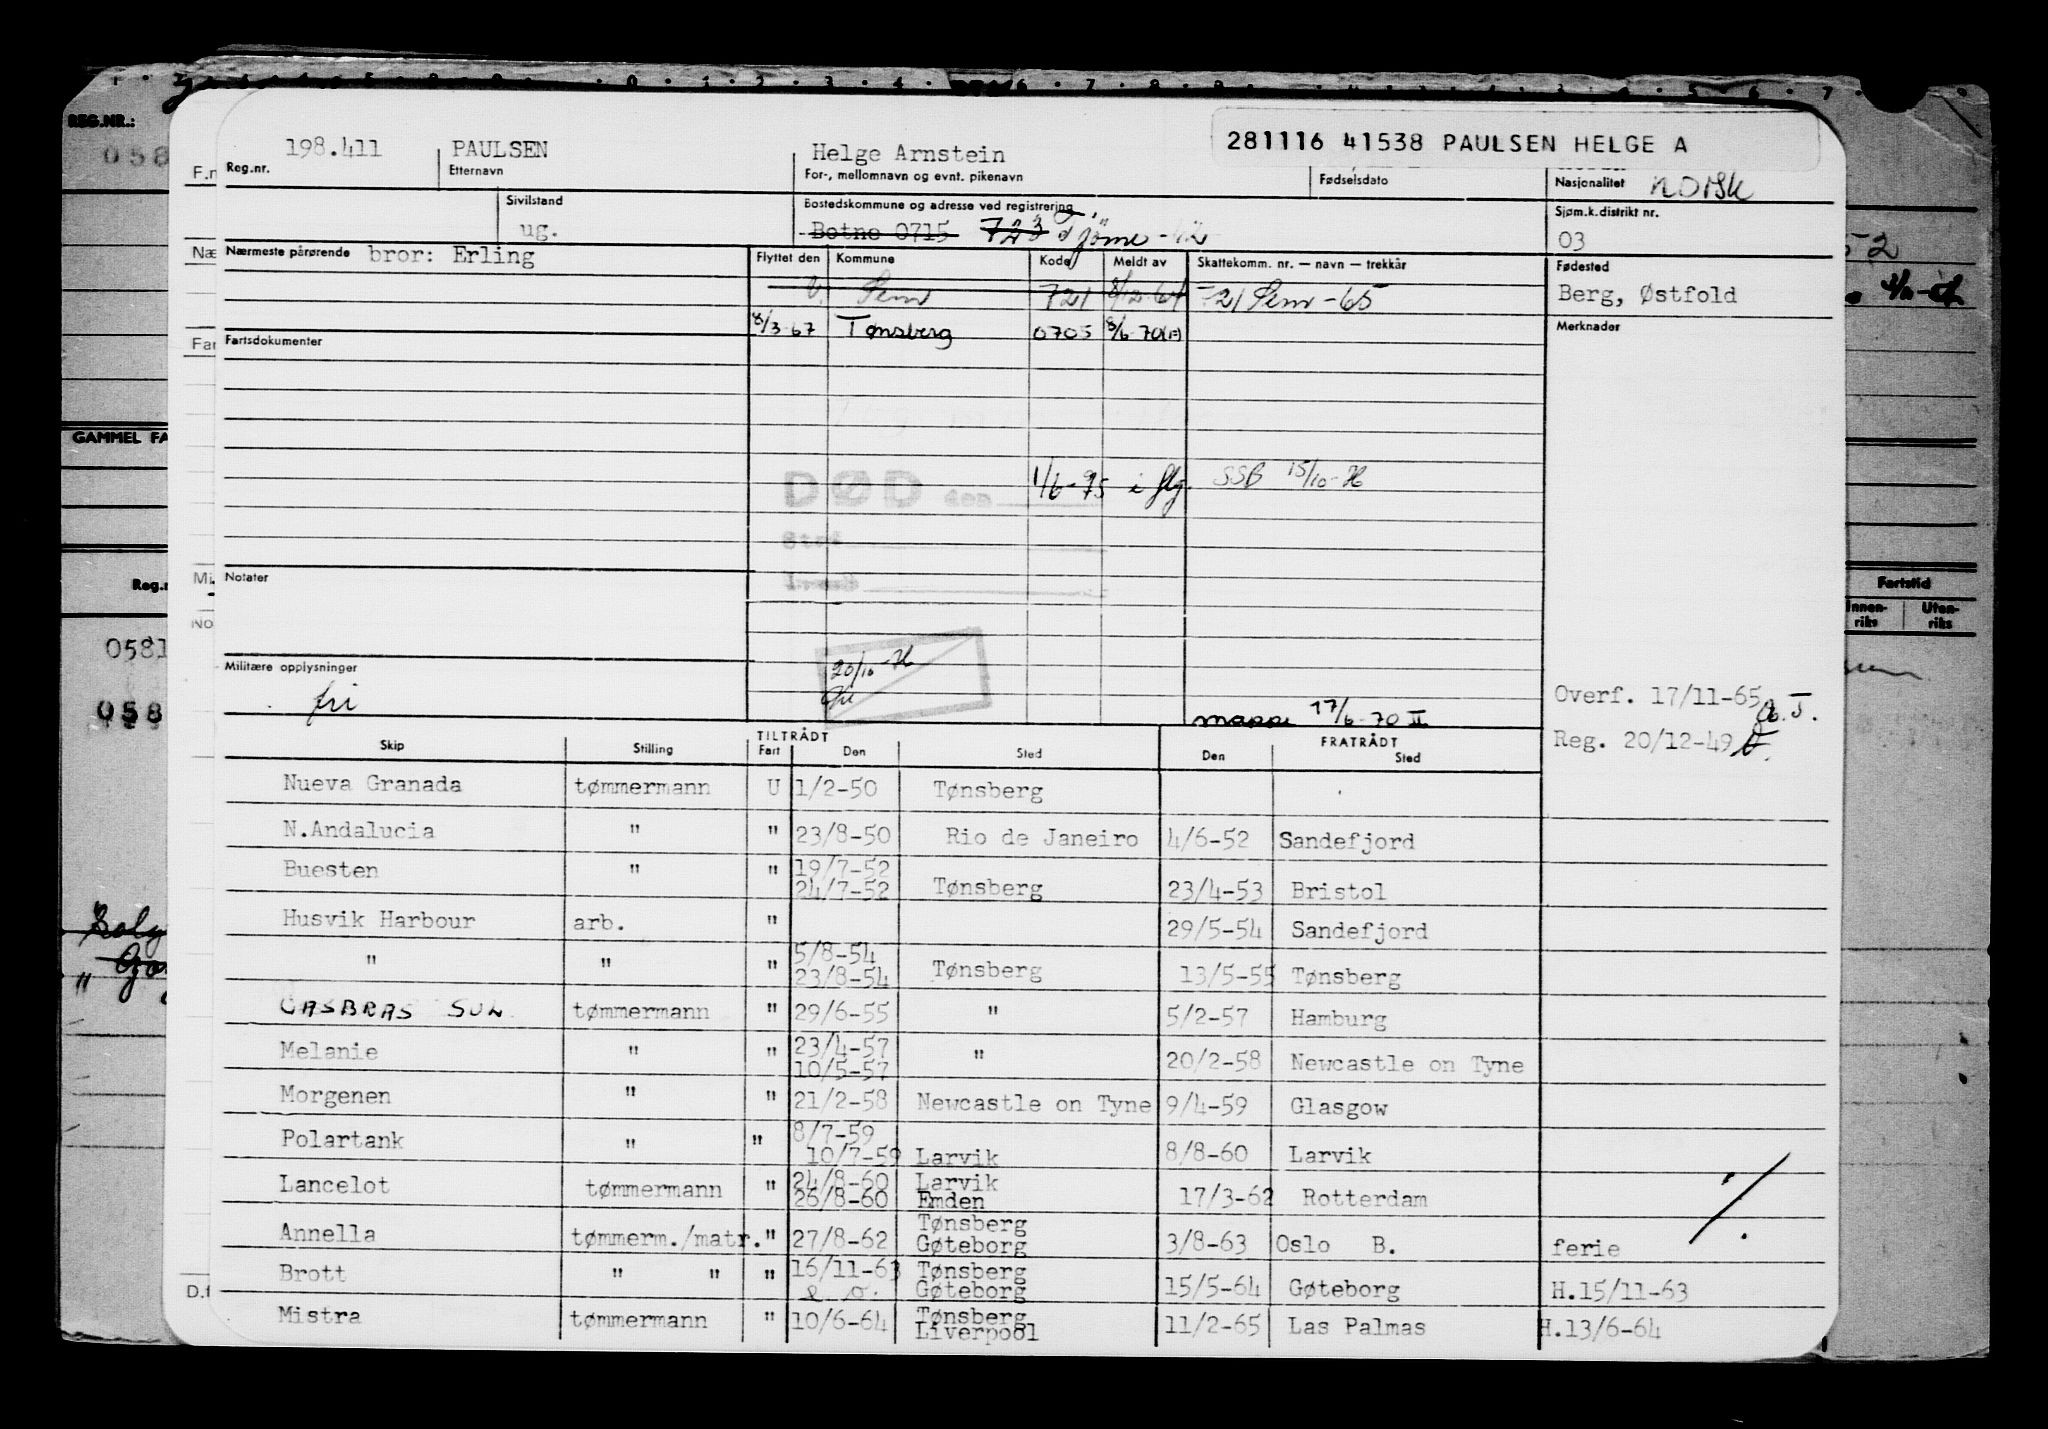 REG.NR.:
198.411 PAULSEN Helge Arnstein 281116 41538 PAULSEN HELGE A
Reg.nr. Etternavn For-, mellomnavn og evnt. pikenavn Fødselsdato Nasjonalitet NORSK
Sivilstand Bostedskommune og adresse ved registrering Sjøm.k.distrikt nr.
ug. Botne 0715 723 Tjöme 03
Nærmeste pårørende bror: Erling Flyttet den Kommune Kode Meldt av Skattekomm. nr. — navn — trekkår Fødested
Sem 721 8/12-64 721 Sem -65 Berg, Østfold
8/3-67 Tønsberg 0705 8/6-70 Merknader
Fartsdokumenter
GAMMEL FA
DØD den 1/6-75 SSB 15/10-76
Sted
Notater
Reg.n Fartstid
Innenriks Utenriks
0581
Militære opplysninger 20/10-76
fri Overf. 17/11-65
058 mappe 17/6-70 II
Reg. 20/12-49
Skip Stilling TILTRÅDT Fart Den Sted FRATRÅDT Den Sted
Nueva Granada tømmermann U 1/2-50 Tønsberg
N.Andalucia " " 23/8-50 Rio de Janeiro 4/6-52 Sandefjord
Buesten " " 19/7-52
24/7-52 Tønsberg 23/4-53 Bristol
Husvik Harbour arb. " 29/5-54 Sandefjord
" " " 5/8-54
23/8-54 Tønsberg 13/5-55 Tønsberg
GASBRAS SUL tømmermann " 29/6-55 " 5/2-57 Hamburg
Melanie " " 23/4-57
10/5-57 " 20/2-58 Newcastle on Tyne
Morgenen " " 21/2-58 Newcastle on Tyne 9/4-59 Glasgow
Polartank " " 8/7-59
10/7-59 Larvik 8/8-60 Larvik
Lancelot tømmermann " 24/8-60 Larvik
26/8-60 Emden 17/3-62 Rotterdam
Annella tømmerm./matr. " 27/8-62 Tønsberg
Gøteborg 3/8-63 Oslo B. ferie
Brott " " " 16/11-63 Tønsberg
Gøteborg 15/5-64 Gøteborg H.15/11-63
Mistra tømmermann " 10/6-64 Tønsberg
Liverpool 11/2-65 Las Palmas H.13/6-64